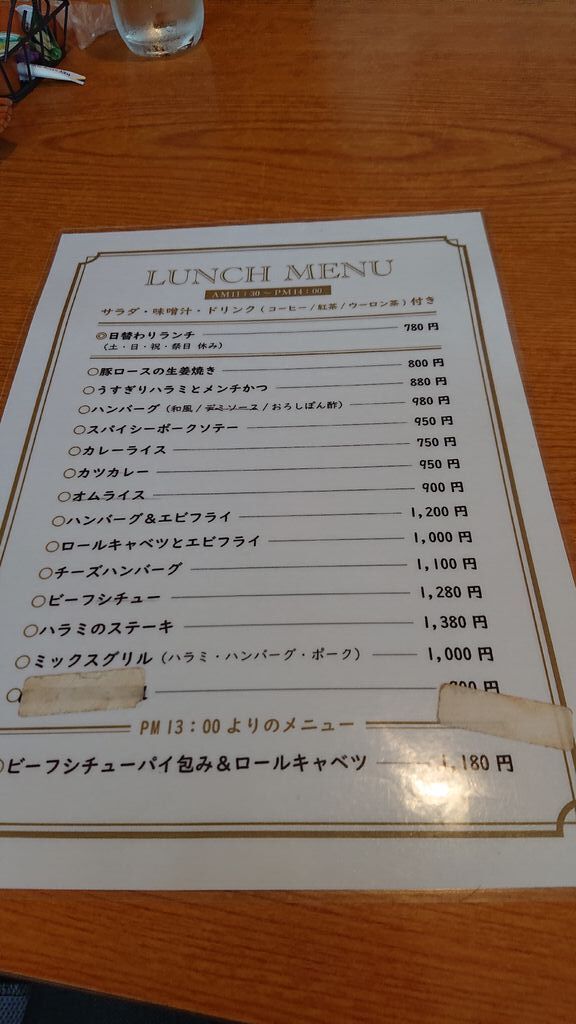 LUNCH MENU
AM11:30～PM14:00
サラダ・味噌汁・ドリンク(コーヒー/紅茶/ウーロン茶)付き
◎日替わりランチ 780円
(土・日・祝・祭日 休み)
○豚ロースの生姜焼き 800円
○うすぎりハラミとメンチかつ 880円
○ハンバーグ(和風/デミソース/おろしぽん酢) 980円
○スパイシーポークソテー 950円
○カレーライス 750円
○カツカレー 950円
○オムライス 900円
○ハンバーグ&エビフライ 1,200円
○ロールキャベツとエビフライ 1,000円
○チーズハンバーグ 1,100円
○ビーフシチュー 1,280円
○ハラミのステーキ 1,380円
○ミックスグリル(ハラミ・ハンバーグ・ポーク) 1,000円
PM 13:00よりのメニュー
○ビーフシチューパイ包み&ロールキャベツ 1,180円